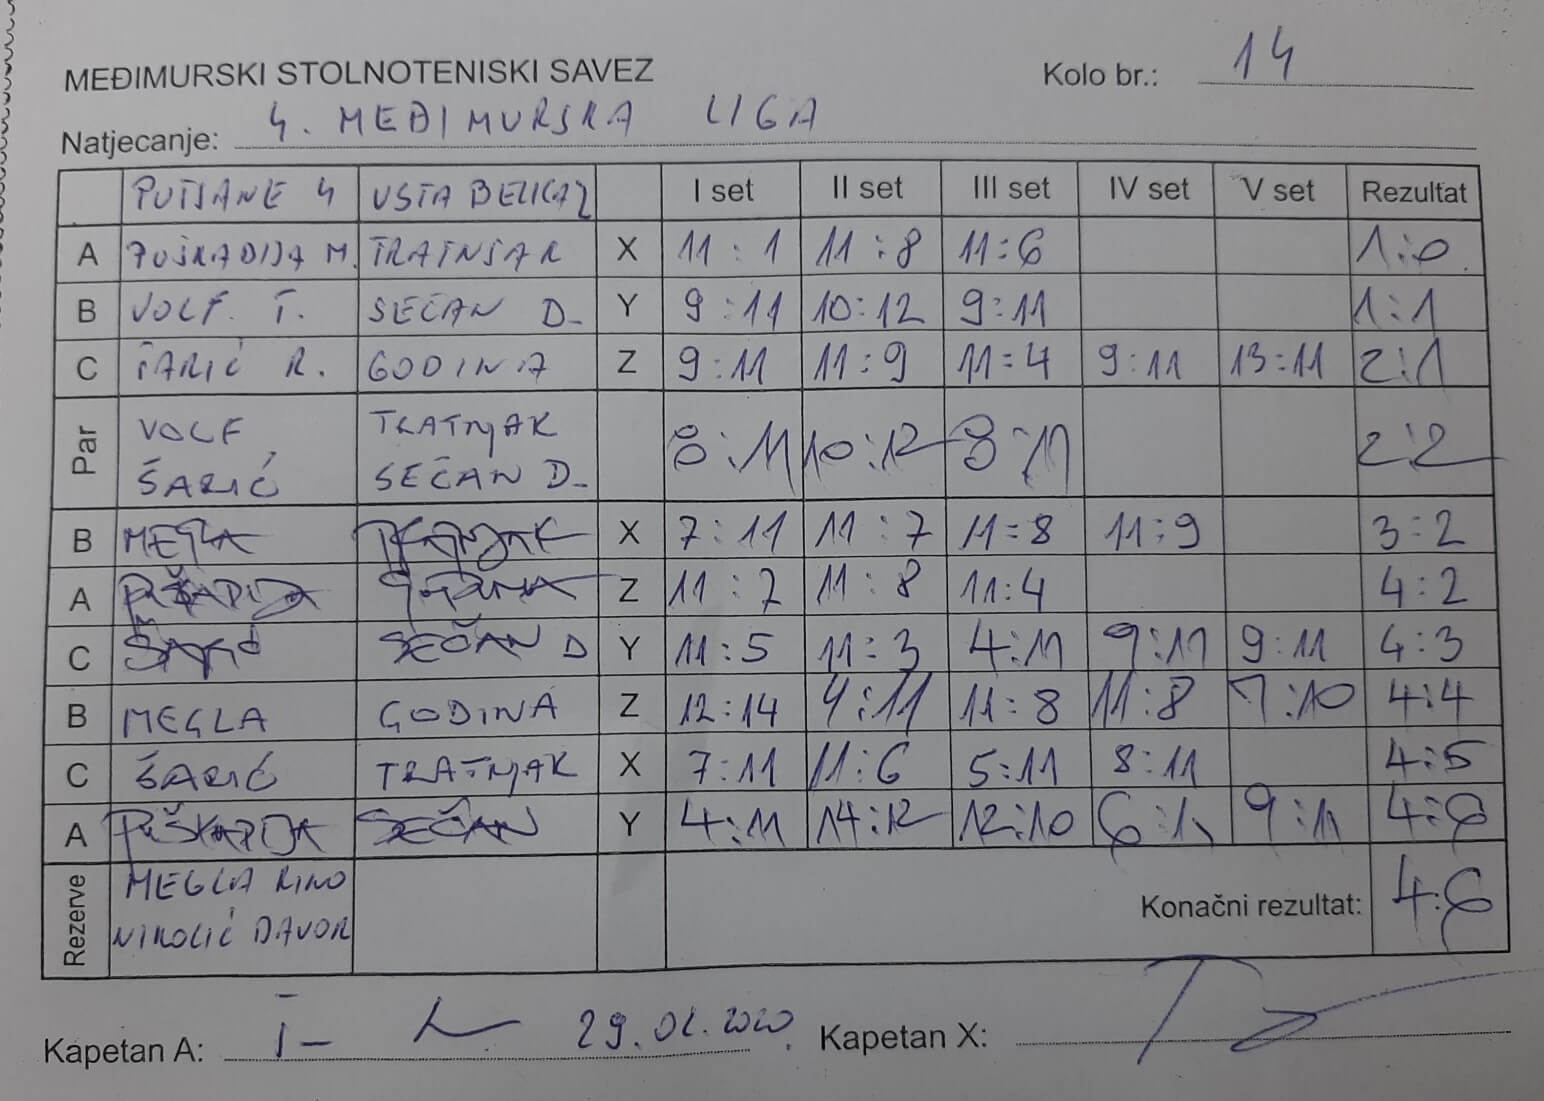 MEĐIMURSKI STOLNOTENISKI SAVEZ
Kolo br.: 14
Natjecanje: 4. MEĐIMURSKA LIGA
PUŠĆINE 4 USTA BELICA 2 I set II set III set IV set V set Rezultat
A PUŠKADIJA M. TRATNJAK X 11:1 11:8 11:6 1:0
B VOLF T. SEČAN D- Y 9:11 10:12 9:11 1:1
C ŠARIĆ R. GODINA Z 9:11 11:9 11:4 9:11 13:11 2:1
Par VOLF TRATNJAK 8:11 10:12 8:11 2:2
ŠARIĆ SEČAN D-
B MEGLA TRATNJAK X 7:11 11:7 11:8 11:9 3:2
A GODINA Z 11:7 11:8 11:4 4:2
C ŠARIĆ SEČAN D Y 11:5 11:3 4:11 9:11 9:11 4:3
B MEGLA GODINA Z 12:14 4:11 11:8 11:8 7:10 4:4
C ŠARIĆ TRATNJAK X 7:11 11:6 5:11 8:11 4:5
A PUŠKADIJA SEČAN Y 4:11 14:12 12:10 6:11 9:11 4:6
Rezerve MEGLA RINO
NIKOLIĆ DAVOR
Konačni rezultat: 4:6
Kapetan A: 29.02.2020. Kapetan X: